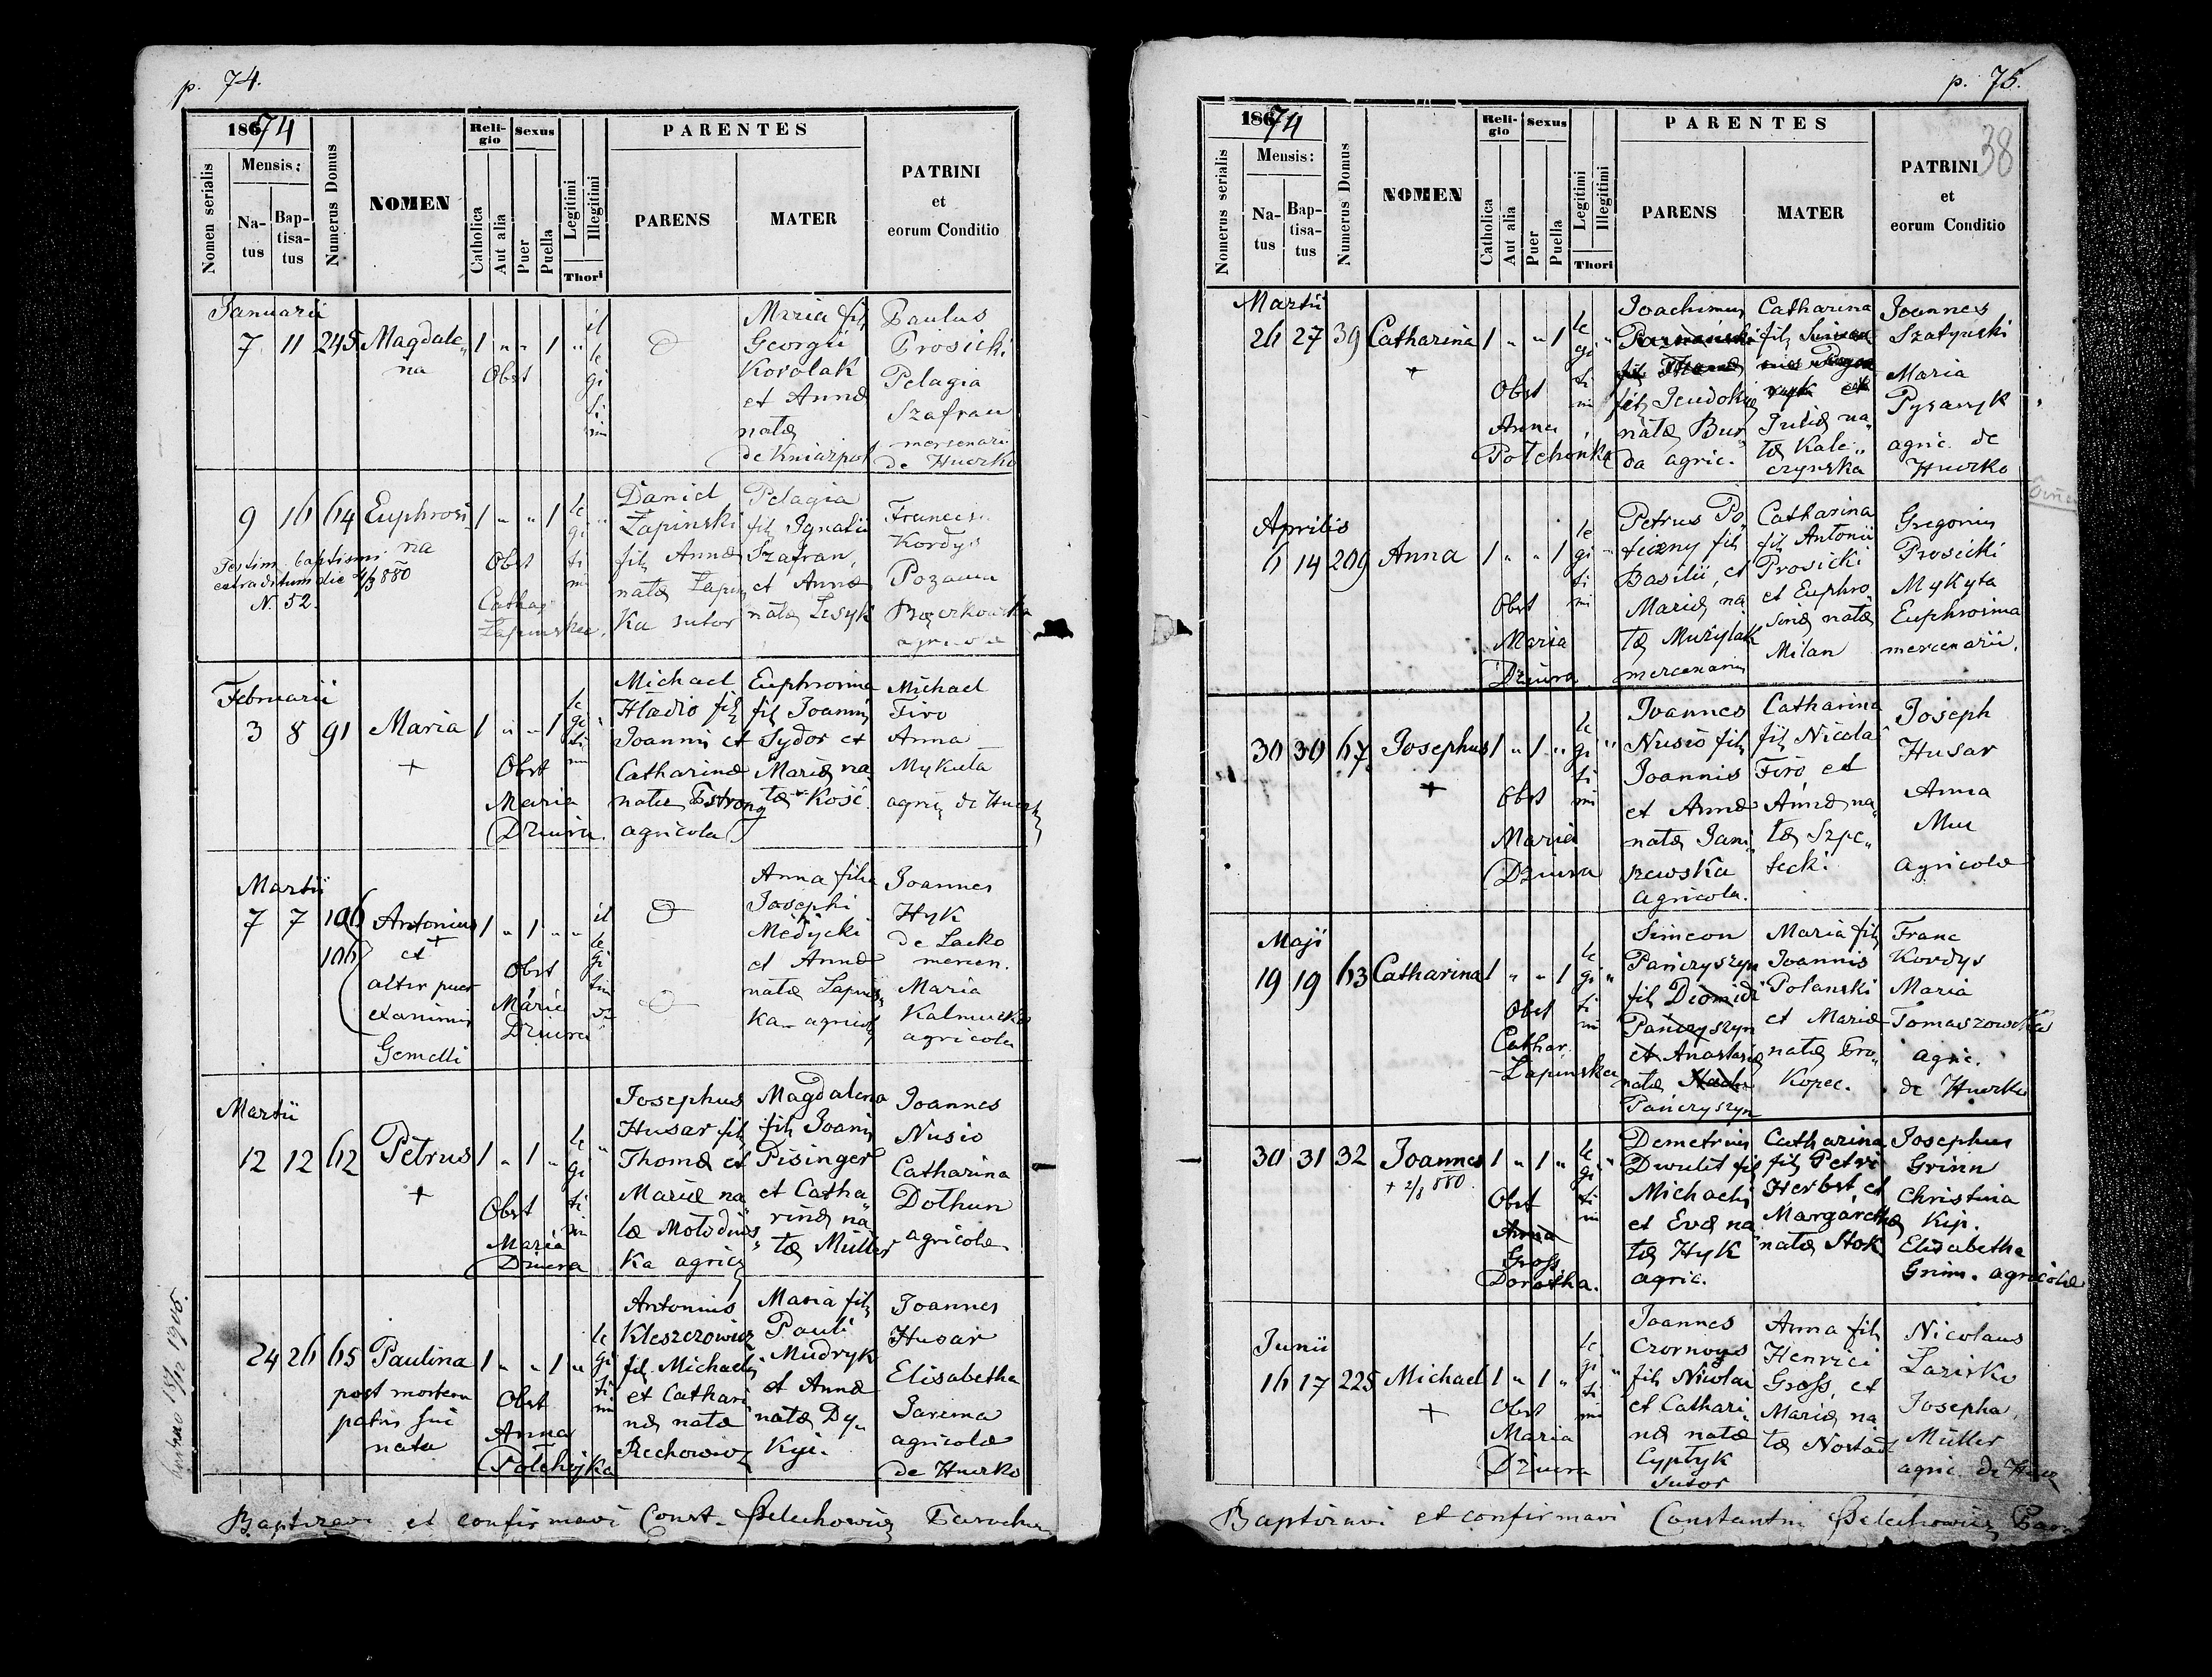 p. 74.
18674
Nomen serialis
Mensis:
Natus
Baptisatus
Numerus Domus
NOMEN
Religio
Catholica
Aut alia
Sexus
Puer
Puella
Legitimi
Illegitimi
Thori
PARENTES
PARENS
MATER
PATRINI
et
eorum Conditio
Januarii
7 11 245 Magdale„
na
1 „ „ 1 „
il
le
gi
ti
mi
Obst
Maria fil
Georgii
Korolak
et Annæ
natæ
de Kniazpol
Paulus
Prosicki
Pelagia
Szafran
mercenarii
de Hurko
9 16 64 Euphrosi
na
1 „ „ 1
le
gi
ti
mi
Testim baptismi
extraditum die 4/3 880
N. 52.
Obst
Cathar
Łapinska.
Daniel
Łapinski
fil Annæ
natæ Łapin
ka sutor
Pelagia
fil Ignatii
Szafran,
et Annæ
natæ Lesyk
Francis.
Kordys
Februarii
3 8 91 Maria
+
1 „ „ 1
le
gi
ti
mi
Obst
Maria
Dziura.
Michael
Hladio fil
Joannis et
Catharinæ
natæ Estrong
agricola
Euphrosina
fil Joannis
Sydor et
Mariæ na
tæ Kość.
Michael
Firo
Anna
Mykuta
agric de Hurko
Martii
7 7 106 Antonius
+
106 et
alter puer
exanimis
Gemelli
1 „ 1 „ „
il
le
gi
tim
Obst
Maria
Dziura
Anna filia
Josephi
Medycki
et Annæ
natæ Lapins„
ka agricol
Joannes
Hyk
de Lacko
mercen.
Maria
agricola
Martii
12 12 62 Petrus
+
1 „ 1 „
le
gi
ti
mi
Obst
Maria
Dziura
Josephus
Husar fil
Thomæ et
Mariæ na„
tæ Motodins„
ka agric
Magdalena
fil Joanis
Pisinger
et Catha„
rinæ na„
tæ Müller
Joannes
Nusio
Catharina
Dothun
agricolæ
24 26 65 Paulina
post mortem
patris sui
nata
1 „ „ 1 „
le
gi
ti
mi
Obst
Anna
Potchojka
Antonius
Kleszczowicz
fil Michaelis
et Cathari
næ natæ
Rechowicz
Maria fil
Pauli
Mudryk
et Annæ
natæ Dy„
kyi.
Joannes
Husar
Elisabetha
Jarema
agricolæ
de Hurko
Baptizavi et confirmavi Const. Pelechowicz Parochus
p. 75.
38
18674
Nomerus serialis
Mensis:
Natus
Baptisatus
Numerus Domus
NOMEN
Religio
Catholica
Aut alia
Sexus
Puer
Puella
Legitimi
Illegitimi
Thori
PARENTES
PARENS
MATER
PATRINI
et
eorum Conditio
Martii
26 27 39 Catharina
+
1 „ „ 1
le
gi
ti
mi
Obst
Anna
Potchonka
Joachimus
fil Jeudokiæ
natæ Bur„
da agric.
Catharina
fil
Juliæ na„
tæ Kale„
czynska
Joannes
Szatynski
Maria
Pysaryk
agric. de
Hurko
Aprilis
6 14 209 Anna
1 „ „ 1
le
gi
ti
mi
Obst
Maria
Dziura
Petrus Po„
ticzny fil
Basilii, et
Mariæ na
tæ Mužylak
mercenarius
Catharina
fil Antonii
Prosicki
et Euphro„
sinæ natæ
Milan
Gregorius
Prosicki
Mykyta
Euphrosina
mercenarii.
30 30 67 Josephus
+
1 „ 1 „
le
gi
ti
mi
Obst
Maria
Dziura
Joannes
Nusio fil
Joannis
et Annæ
natæ Jani„
szewska
agricola.
Catharina
fil Nicolai
Firo, et
Annæ na„
tæ Szpe„
tecki.
Joseph
Husar
Anna
Mu
agricolæ
Maji
19 19 63 Catharina
1 „ „ 1
le
gi
ti
mi
Obst
Cathar.
Łapinska
Simeon
Pańczyszyn
fil Diomidi
Pańczyszyn
et Anastasiæ
natæ
Pańczyszyn
Maria fil
Joannis
Polanski
et Mariæ
natæ Pro„
kopec.
Franc
Kordys
Maria
Tomaszowska
agric.
de Hurko
30 31 32 Joannes
+ 2/8 880.
1 „ 1 „
le
gi
ti
mi
Obst
Anna
Gross
Dorotha.
Demetrius
Dwulit fil
Michaelis
et Evæ na
tæ Hyk
agric.
Catharina
fil Petri
Herbst, et
Margarethæ
natæ Stok
Josephus
Grinn
Christina
Kip.
Elisabetha
Grim. agricolæ
Junii
16 17 225 Michael
+
1 „ 1 „
le
gi
ti
mi
Obst
Maria
Dziura
Joannes
Czornoys
fil Nicolai
et Cathari„
næ natæ
Cyptyk
sutor
Anna fil
Henrici
Gross, et
Mariæ na
tæ Nostadt
Nicolaus
Lazirko
Josepha
Müller
agric. de Hur
Baptizavi et confirmavi Constantin Pelechowicz Paro